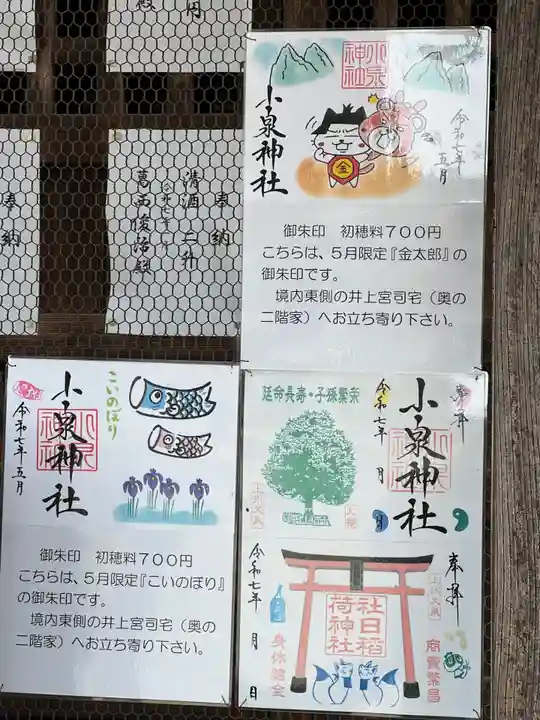 円
奉納
奉納
清酒 二升
葛西俊治殿
小泉神社
小泉神社
金
令和七年
五月
御朱印 初穂料７００円
こちらは、５月限定『金太郎』の
御朱印です。
境内東側の井上宮司宅（奥の
二階家）へお立ち寄り下さい。
こいのぼり
小泉神社
小泉神社
令和七年五月
御朱印 初穂料７００円
こちらは、５月限定『こいのぼり』
の御朱印です。
境内東側の井上宮司宅（奥の
二階家）へお立ち寄り下さい。
延命長寿・子孫繁栄
奉拝
小泉神社
令和七年 月 日
奉拝
社日稲
荷神社
商売繁昌
身体健全
令和七年 月 日